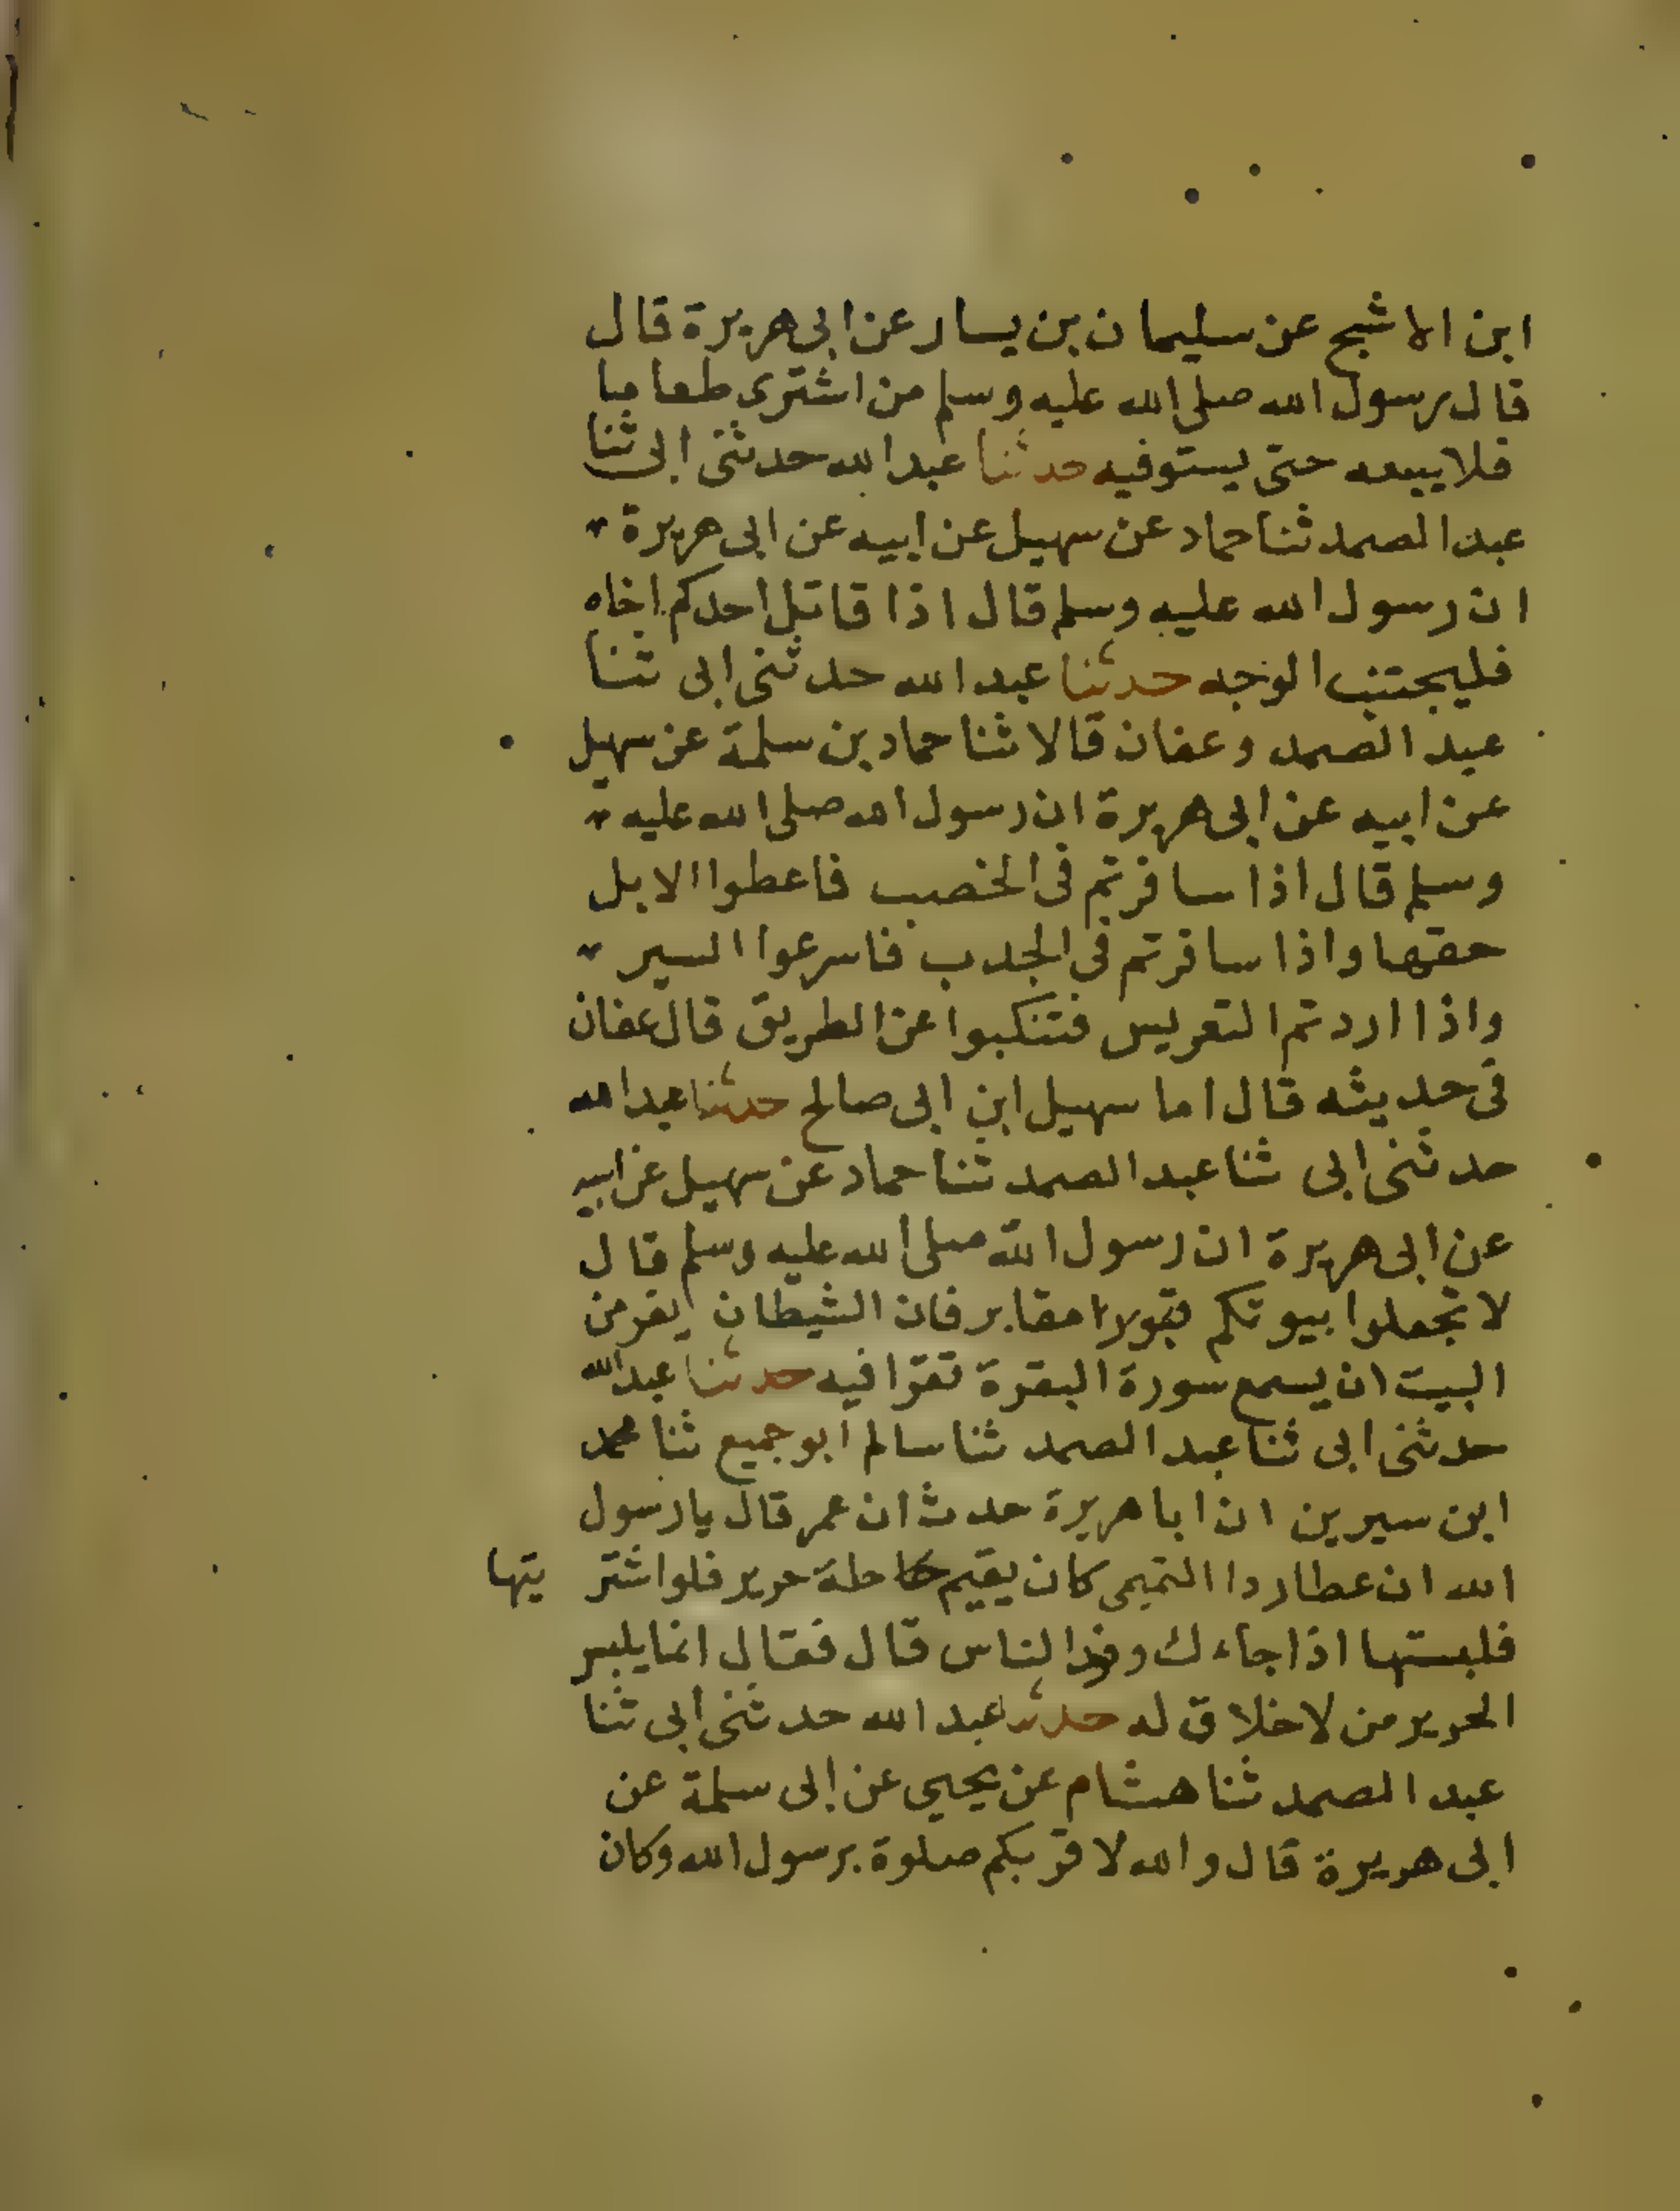 ابن الاشبح عن سليمان بن يسار عن ابى هريرة قال
قال رسول الله صلى الله عليه وسلم من اشترى طعاما
فلا يبعه حتى يستوفيه حدثنا عبد الله حدثنى ابى ثنا
عبد الصمد ثنا حماد عن سهيل عن ابيه عن ابى هريرة
ان رسول الله عليه وسلم قال اذا قاتل احدكم اخاه
فليجتنب الوجه حدثنا عبد الله حدثنى ابى ثنا
عبد الصمد وعفان قالا ثنا حماد بن سلمة عن سهيل
عن ابيه عن ابى هريرة ان رسول الله صلى الله عليه
وسلم قال اذا سافرتم فى الخصب فاعطوا الابل
حقها واذا سافرتم فى الجدب فاسرعوا السير
واذا اردتم التعريس فتنكبوا عن الطريق قال عفان
فى حديثه قال اما سهيل ابن ابى صالح حدثنا عبد الله
حدثنى ابى ثنا عبد الصمد ثنا حماد عن سهيل عن ابيه
عن ابى هريرة ان رسول الله صلى الله عليه وسلم قال
لا تجعلوا بيوتكم قبورا مقابر فان الشيطان يفر من
البيت ان يسمع سورة البقرة تقرا فيه حدثنا عبد الله
حدثنى ابى ثنا عبد الصمد ثنا سالم ابو جميع ثنا محمد
ابن سيرين ان ابا هريرة حدث ان عمر قال يا رسول
الله ان عطاردا التميمى كان يقيم حلة حرير فلو اشتريتها
فلبستها اذا جاءك وفد الناس قال فقال انما يلبس
الحرير من لا خلاق له حدثنا عبد الله حدثنى ابى ثنا
عبد الصمد ثنا هشام عن يحيى عن ابى سلمة عن
ابى هريرة قال والله لا قربكم صلوة برسول الله وكان